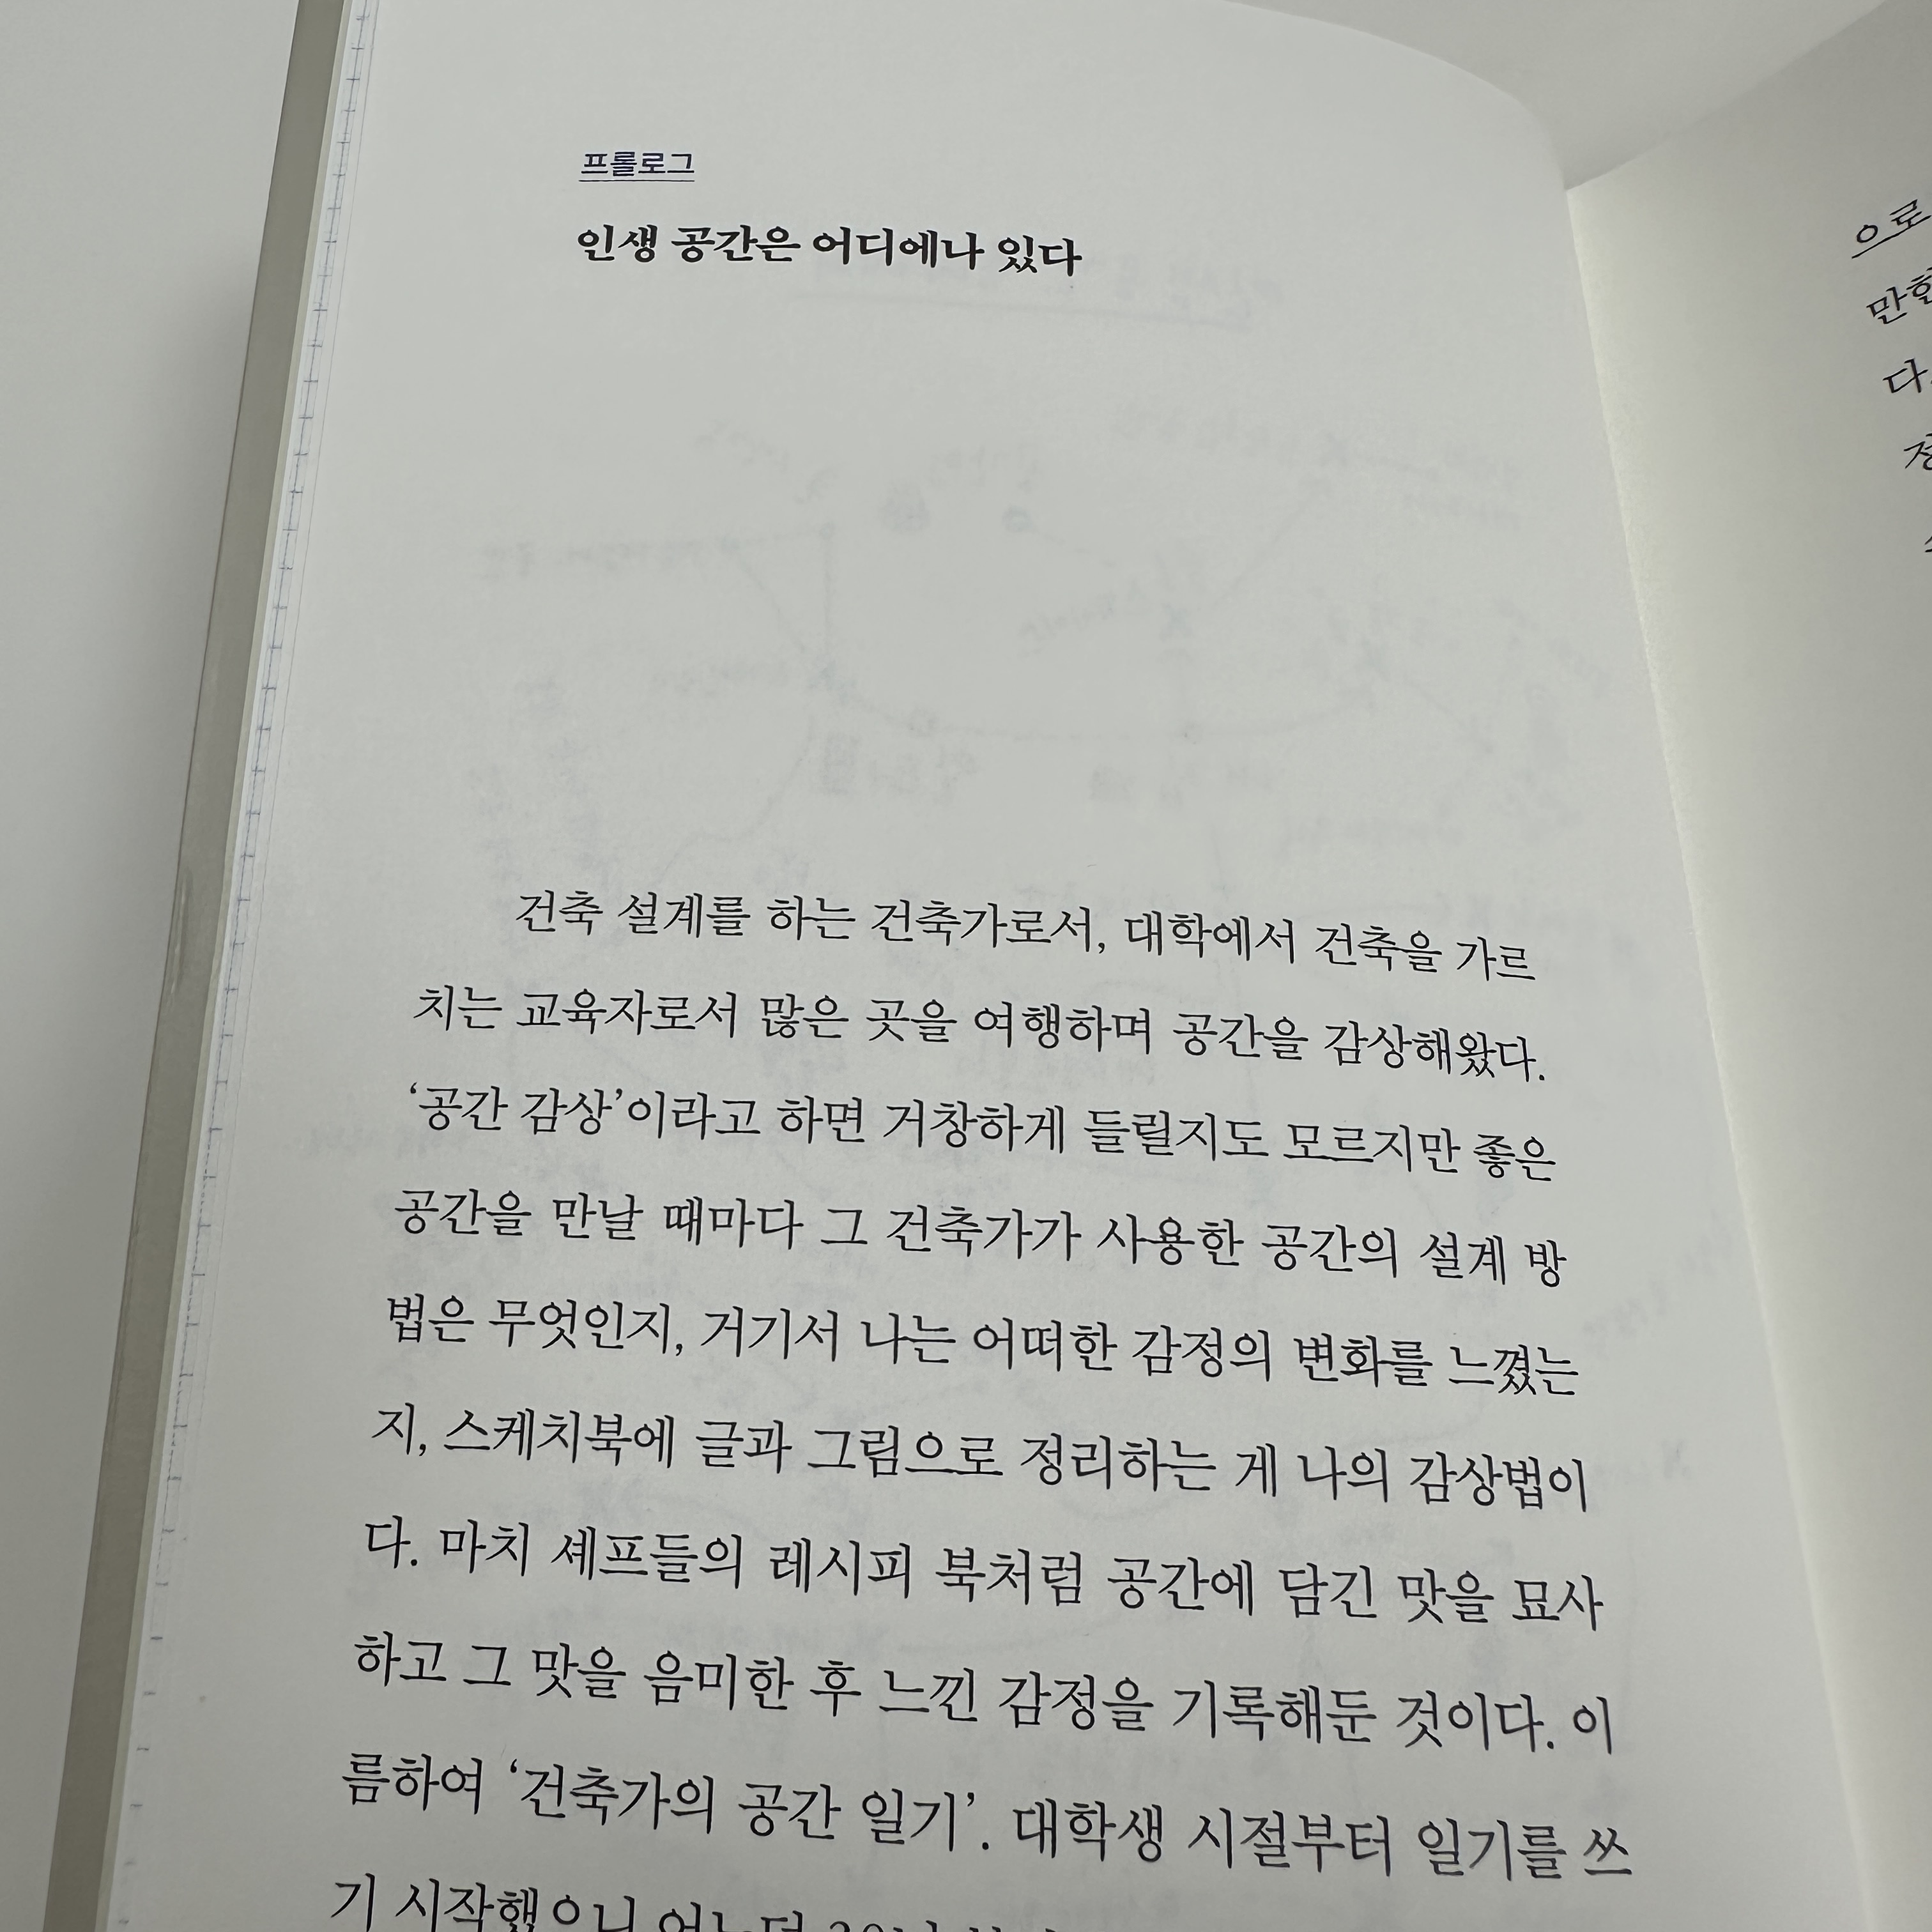 프롤로그
인생 공간은 어디에나 있다
건축 설계를 하는 건축가로서, 대학에서 건축을 가르
치는 교육자로서 많은 곳을 여행하며 공간을 감상해왔다.
‘공간 감상’이라고 하면 거창하게 들릴지도 모르지만 좋은
공간을 만날 때마다 그 건축가가 사용한 공간의 설계 방
법은 무엇인지, 거기서 나는 어떠한 감정의 변화를 느꼈는
지, 스케치북에 글과 그림으로 정리하는 게 나의 감상법이
다. 마치 셰프들의 레시피 북처럼 공간에 담긴 맛을 묘사
하고 그 맛을 음미한 후 느낀 감정을 기록해둔 것이다. 이
름하여 ‘건축가의 공간 일기’. 대학생 시절부터 일기를 쓰
기 시작했으니
으로
다.